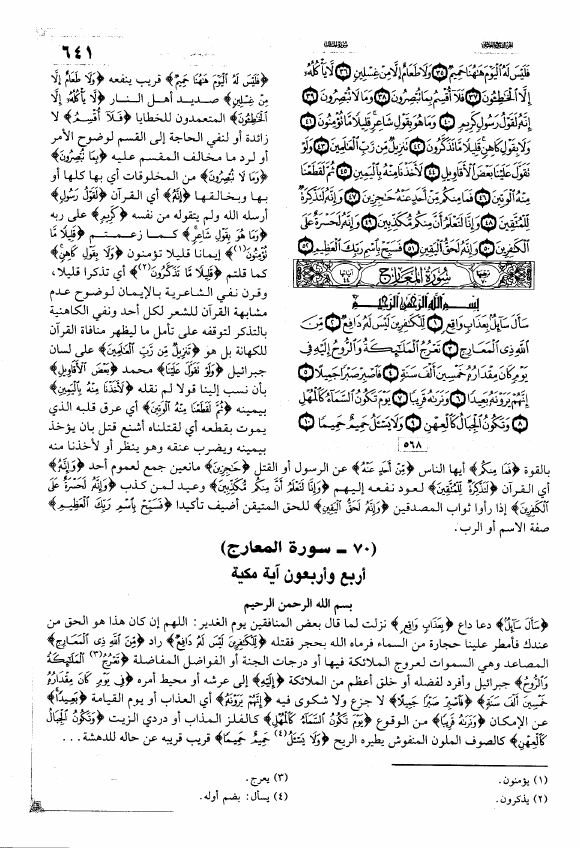 ٦٤١
فَلَيْسَ لَهُ الْيَوْمَ هَٰهُنَا حَمِيمٌ ٣٥ وَلَا طَعَامٌ إِلَّا مِنْ غِسْلِينٍ ٣٦ لَّا يَأْكُلُهُ
إِلَّا الْخَاطِئُونَ ٣٧ فَلَا أُقْسِمُ بِمَا تُبْصِرُونَ ٣٨ وَمَا لَا تُبْصِرُونَ ٣٩
إِنَّهُ لَقَوْلُ رَسُولٍ كَرِيمٍ ٤٠ وَمَا هُوَ بِقَوْلِ شَاعِرٍ قَلِيلًا مَّا تُؤْمِنُونَ ٤١
وَلَا بِقَوْلِ كَاهِنٍ قَلِيلًا مَّا تَذَكَّرُونَ ٤٢ تَنزِيلٌ مِّن رَّبِّ الْعَالَمِينَ ٤٣ وَلَوْ
تَقَوَّلَ عَلَيْنَا بَعْضَ الْأَقَاوِيلِ ٤٤ لَأَخَذْنَا مِنْهُ بِالْيَمِينِ ٤٥ ثُمَّ لَقَطَعْنَا
مِنْهُ الْوَتِينَ ٤٦ فَمَا مِنكُم مِّنْ أَحَدٍ عَنْهُ حَاجِزِينَ ٤٧ وَإِنَّهُ لَتَذْكِرَةٌ
لِّلْمُتَّقِينَ ٤٨ وَإِنَّا لَنَعْلَمُ أَنَّ مِنكُم مُّكَذِّبِينَ ٤٩ وَإِنَّهُ لَحَسْرَةٌ عَلَى
الْكَافِرِينَ ٥٠ وَإِنَّهُ لَحَقُّ الْيَقِينِ ٥١ فَسَبِّحْ بِاسْمِ رَبِّكَ الْعَظِيمِ ٥٢
سُورَةُ الْمَعَارِجِ
بِسْمِ اللَّهِ الرَّحْمَٰنِ الرَّحِيمِ
سَأَلَ سَائِلٌ بِعَذَابٍ وَاقِعٍ ١ لِّلْكَافِرِينَ لَيْسَ لَهُ دَافِعٌ ٢ مِّنَ
اللَّهِ ذِي الْمَعَارِجِ ٣ تَعْرُجُ الْمَلَائِكَةُ وَالرُّوحُ إِلَيْهِ فِي
يَوْمٍ كَانَ مِقْدَارُهُ خَمْسِينَ أَلْفَ سَنَةٍ ٤ فَاصْبِرْ صَبْرًا جَمِيلًا ٥
إِنَّهُمْ يَرَوْنَهُ بَعِيدًا ٦ وَنَرَاهُ قَرِيبًا ٧ يَوْمَ تَكُونُ السَّمَاءُ كَالْمُهْلِ
٨ وَتَكُونُ الْجِبَالُ كَالْعِهْنِ ٩ وَلَا يَسْأَلُ حَمِيمٌ حَمِيمًا ١٠
٥٦٨
﴿فَلَيْسَ لَهُ الْيَوْمَ هَٰهُنَا حَمِيمٌ﴾ قريب ينفعه ﴿وَلَا طَعَامٌ إِلَّا
مِنْ غِسْلِينٍ﴾ صديد أهل النار ﴿لَّا يَأْكُلُهُ إِلَّا
الْخَاطِئُونَ﴾ المتعمدون للخطايا ﴿فَلَا أُقْسِمُ﴾ لا
زائدة أو لنفي الحاجة إلى القسم لوضوح الأمر
أو لرد ما مخالف المقسم عليه ﴿بِمَا تُبْصِرُونَ﴾
﴿وَمَا لَا تُبْصِرُونَ﴾ من المخلوقات أي بها كلها أو
بها وبخالقها ﴿إِنَّهُ﴾ أي القرآن ﴿لَقَوْلُ رَسُولٍ﴾
أرسله الله ولم يتقوله من نفسه ﴿كَرِيمٍ﴾ على ربه
﴿وَمَا هُوَ بِقَوْلِ شَاعِرٍ﴾ كما زعمتم ﴿قَلِيلًا مَّا
تُؤْمِنُونَ﴾(١) إيمانا قليلا تؤمنون ﴿وَلَا بِقَوْلِ كَاهِنٍ﴾
كما قلتم ﴿قَلِيلًا مَّا تَذَكَّرُونَ﴾(٢) أي تذكرا قليلا،
وقرن نفي الشاعرية بالإيمان لوضوح عدم
مشابهة القرآن للشعر لكل أحد ونفي الكاهنية
بالتذكر لتوقفه على تأمل ما ليظهر منافاة القرآن
للكهانة بل هو ﴿تَنزِيلٌ مِّن رَّبِّ الْعَالَمِينَ﴾ على لسان
جبرائيل ﴿وَلَوْ تَقَوَّلَ عَلَيْنَا﴾ محمد ﴿بَعْضَ الْأَقَاوِيلِ﴾
بأن نسب إلينا قولا لم نقله ﴿لَأَخَذْنَا مِنْهُ بِالْيَمِينِ﴾
بيمينه ﴿ثُمَّ لَقَطَعْنَا مِنْهُ الْوَتِينَ﴾ أي عرق قلبه الذي
يموت بقطعه أي لقتلناه أشنع قتل بأن يؤخذ
بيمينه ويضرب عنقه وهو ينظر أو لأخذنا منه
بالقوة ﴿فَمَا مِنكُم﴾ أيها الناس ﴿مِّنْ أَحَدٍ عَنْهُ﴾ عن الرسول أو القتل ﴿حَاجِزِينَ﴾ مانعين جمع لعموم أحد ﴿وَإِنَّهُ﴾
أي القرآن ﴿لَتَذْكِرَةٌ لِّلْمُتَّقِينَ﴾ لعود نفعه إليهم ﴿وَإِنَّا لَنَعْلَمُ أَنَّ مِنكُم مُّكَذِّبِينَ﴾ وعيد لمن كذب ﴿وَإِنَّهُ لَحَسْرَةٌ عَلَى
الْكَافِرِينَ﴾ إذا رأوا ثواب المصدقين ﴿وَإِنَّهُ لَحَقُّ الْيَقِينِ﴾ للحق المتيقن أضيف تأكيدا ﴿فَسَبِّحْ بِاسْمِ رَبِّكَ الْعَظِيمِ﴾
صفة الاسم أو الرب.
(٧٠ ـ سورة المعارج)
أربع وأربعون آية مكية
بسم الله الرحمن الرحيم
﴿سَأَلَ سَائِلٌ﴾ دعا داع ﴿بِعَذَابٍ وَاقِعٍ﴾ نزلت لما قال بعض المنافقين يوم الغدير: اللهم إن كان هذا هو الحق من
عندك فأمطر علينا حجارة من السماء فرماه الله بحجر فقتله ﴿لِّلْكَافِرِينَ لَيْسَ لَهُ دَافِعٌ﴾ راد ﴿مِّنَ اللَّهِ ذِي الْمَعَارِجِ﴾
المصاعد وهي السموات لعروج الملائكة فيها أو درجات الجنة أو الفواضل المفاضلة ﴿تَعْرُجُ(٣) الْمَلَائِكَةُ
وَالرُّوحُ﴾ جبرائيل وأفرد لفضله أو خلق أعظم من الملائكة ﴿إِلَيْهِ﴾ إلى عرشه أو محيط أمره ﴿فِي يَوْمٍ كَانَ مِقْدَارُهُ
خَمْسِينَ أَلْفَ سَنَةٍ﴾ ﴿فَاصْبِرْ صَبْرًا جَمِيلًا﴾ لا جزع ولا شكوى فيه ﴿إِنَّهُمْ يَرَوْنَهُ﴾ أي العذاب أو يوم القيامة ﴿بَعِيدًا﴾
عن الإمكان ﴿وَنَرَاهُ قَرِيبًا﴾ من الوقوع ﴿يَوْمَ تَكُونُ السَّمَاءُ كَالْمُهْلِ﴾ كالفلز المذاب أو دردي الزيت ﴿وَتَكُونُ الْجِبَالُ
كَالْعِهْنِ﴾ كالصوف الملون المنفوش يطيره الريح ﴿وَلَا يَسْأَلُ(٤) حَمِيمٌ حَمِيمًا﴾ قريب قريبه عن حاله للدهشة...
(١) يؤمنون.
(٢) يذكرون.
(٣) يعرج.
(٤) يسأل: بضم أوله.